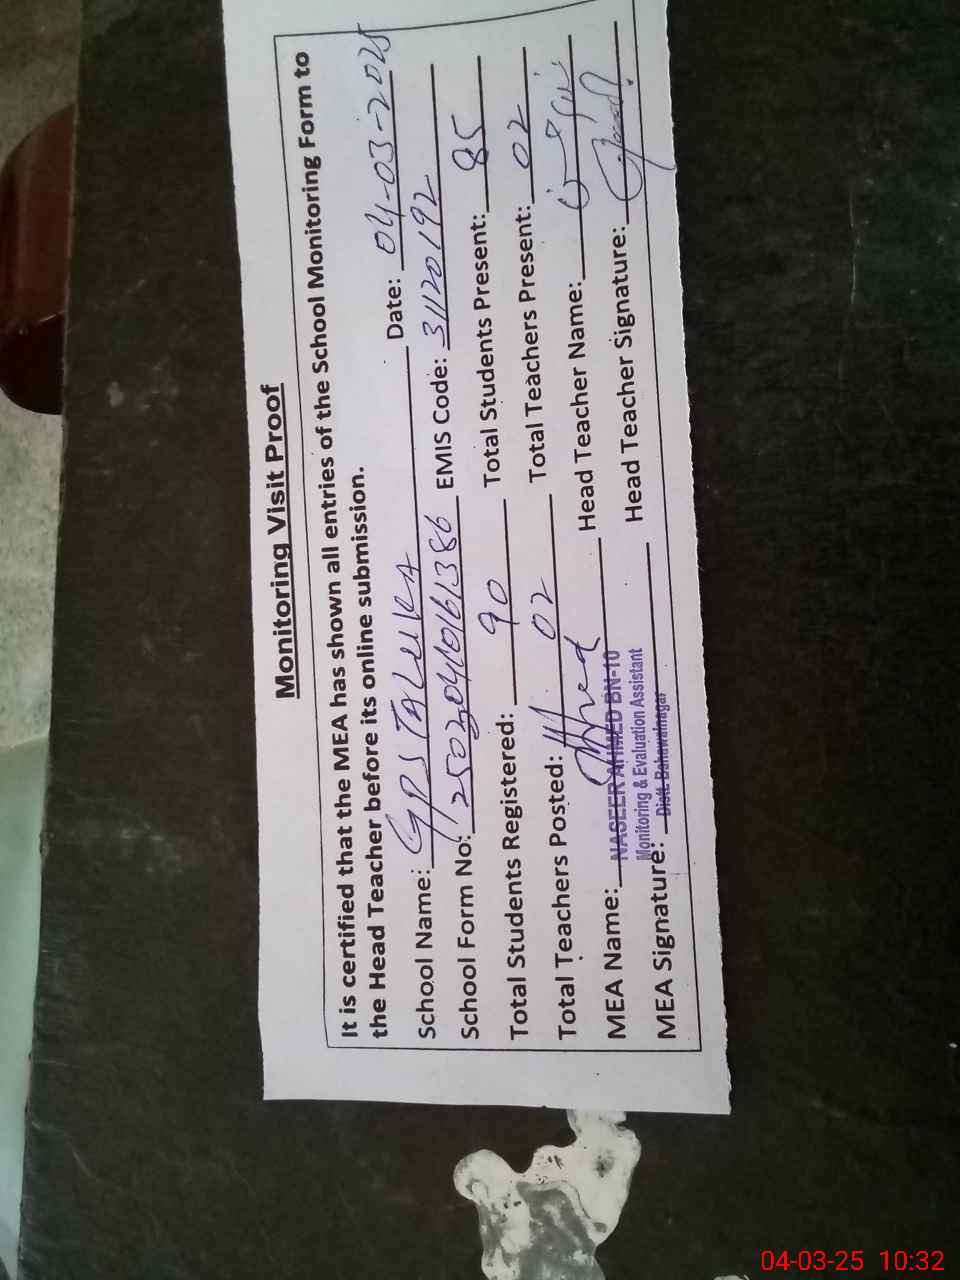 Monitoring Visit Proof
It is certified that the MEA has shown all entries of the School Monitoring Form to
the Head Teacher before its online submission.
School Name: GPS TALUKA Date: 04-03-2025
School Form No: 2503040161386 EMIS Code: 31120192
Total Students Registered: 90 Total Students Present: 85
Total Teachers Posted: 02 Total Teachers Present: 02
MEA Name: NASEER AHMED BN-10 Head Teacher Name:
Monitoring & Evaluation Assistant
MEA Signature: Distt. Bahawalnagar Head Teacher Signature:
04-03-25 10:32